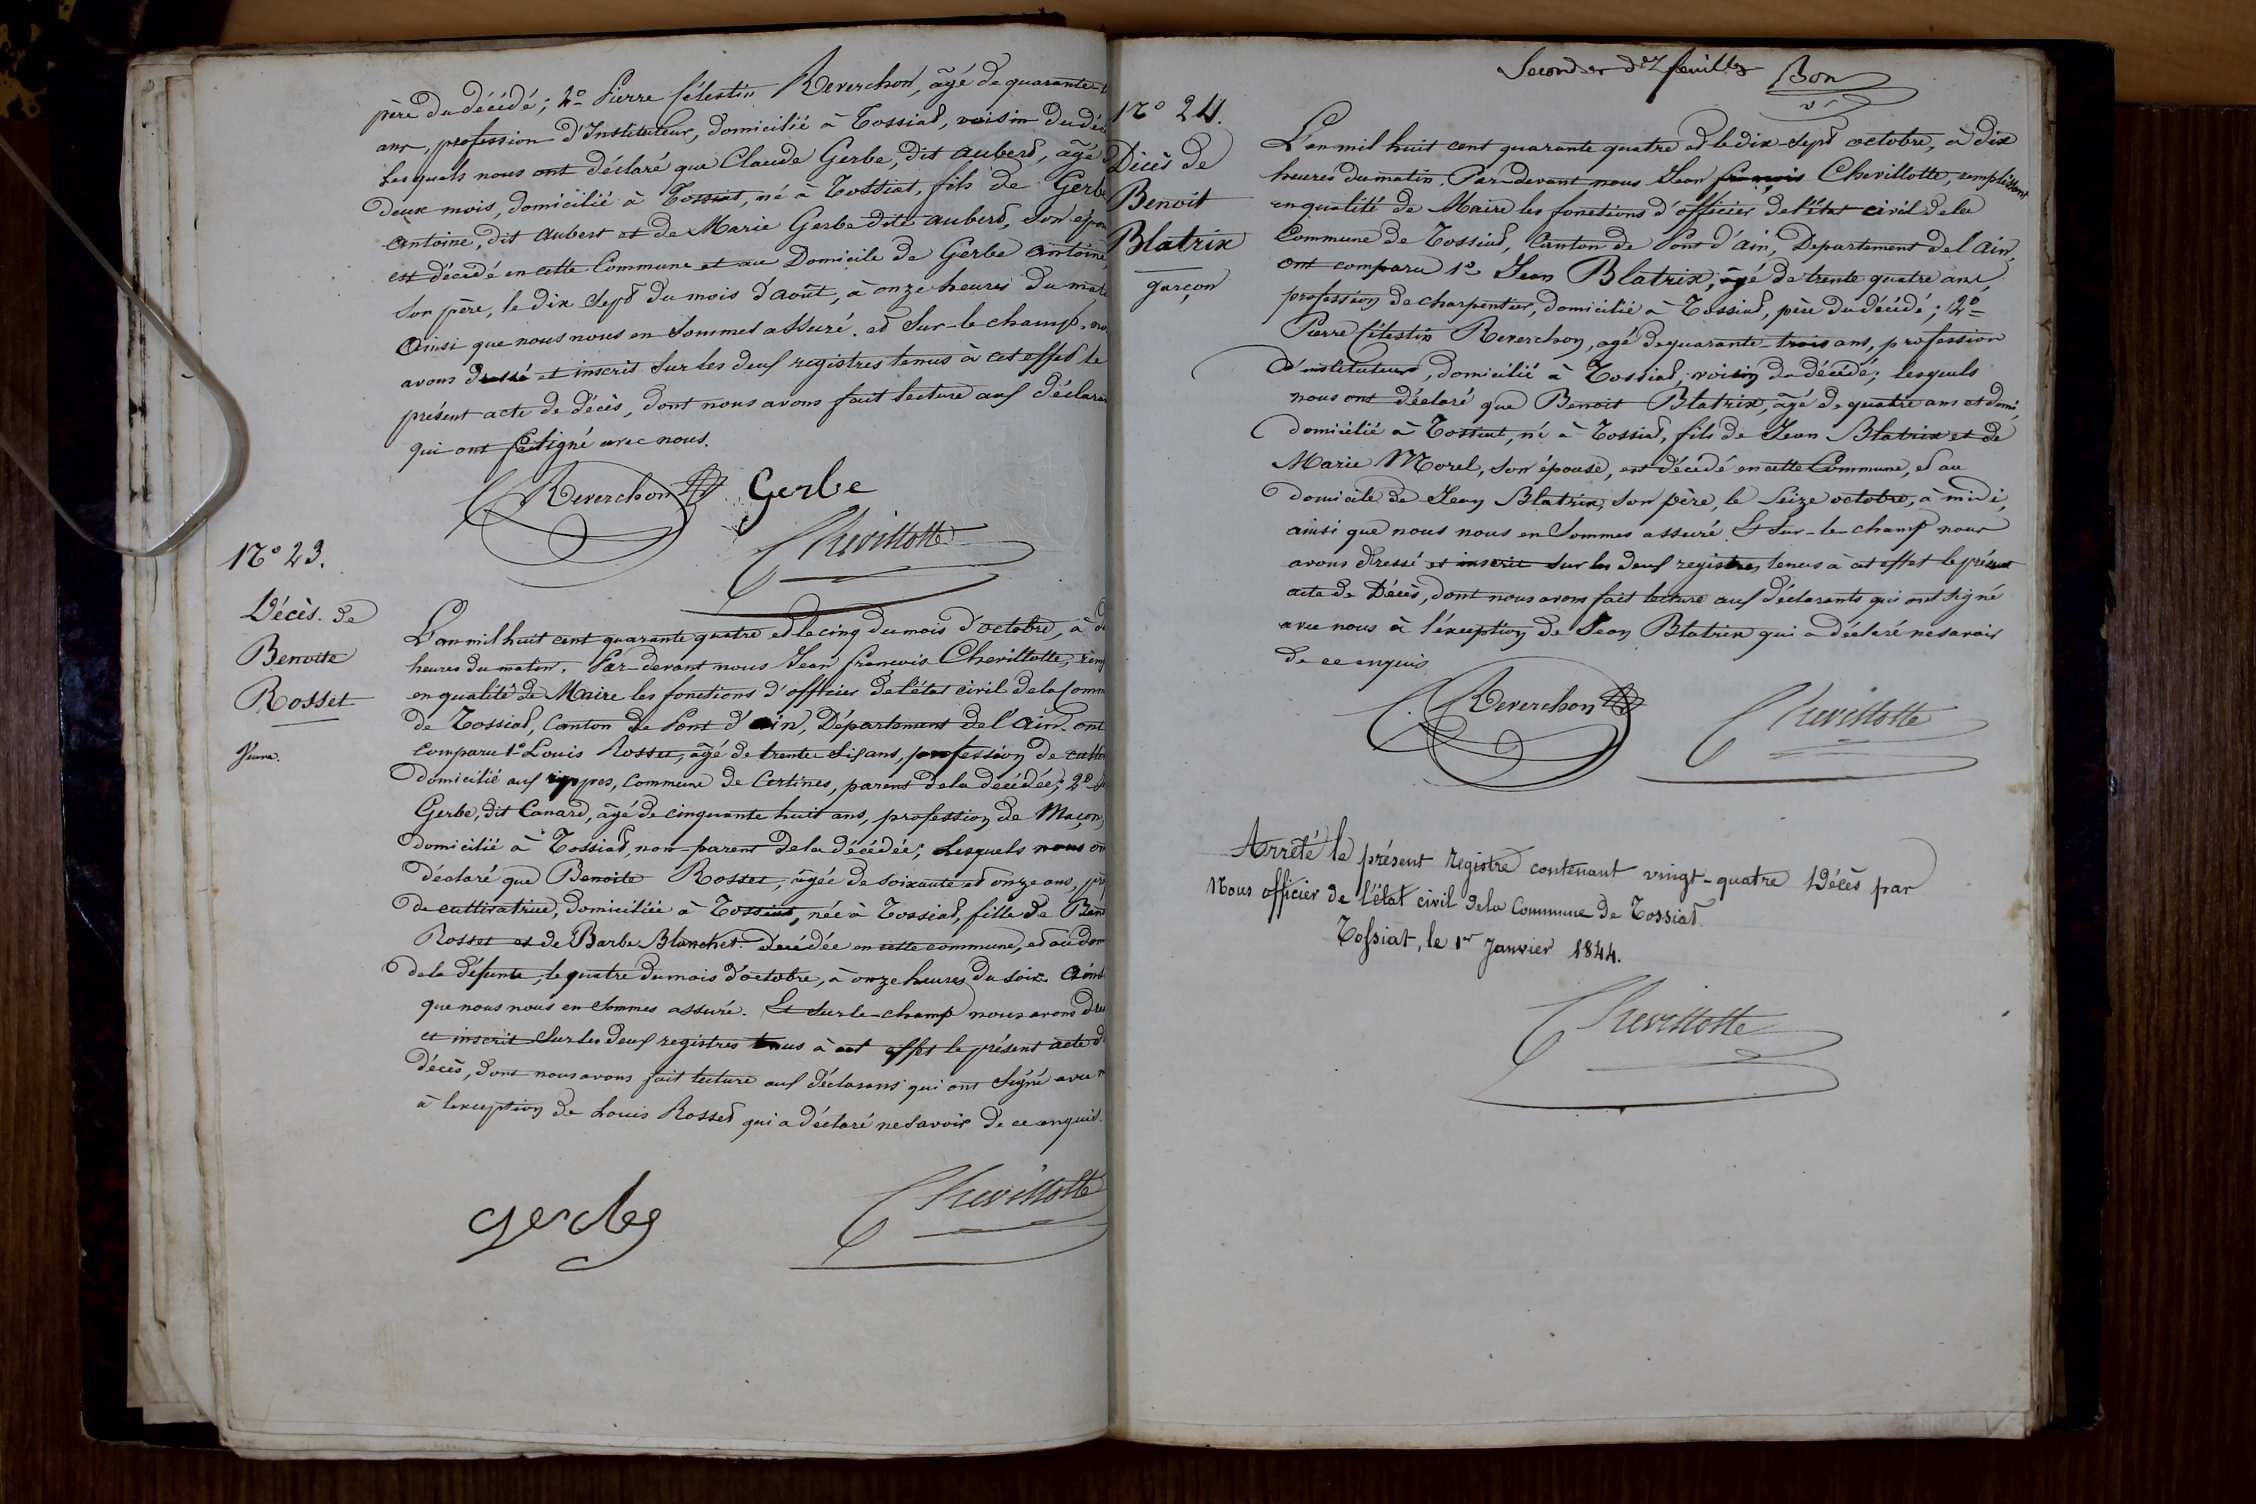 père du décédé; 2º Pierre Célestin Reverchon, âgé de quarante
ans, profession d'Instituteur, domicilié à Tossiat, voisin du déc
Lesquels nous ont déclaré que Claude Gerbe, dit aubert, âgé
deux mois, domicilié à Tossiat, né à Tossiat, fils de Gerbe
antoine, dit aubert et de Marie Gerbe dite aubert, son epou
est décédé en cette Commune et au Domicile de Gerbe antoine,
son père, le dix sept du mois d'août, à onze heures du mati
Ainsi que nous nous en sommes assuré. et Sur-le champ, nou
avons dressé et inscrit sur les deux registres tenus à cet effet le
présent acte de décès, dont nous avons fait lecture aux déclaran
qui ont signé avec nous.
Reverchon Gerbe
Chevillotte
Nº 23.
Décès de
Benoite
Rosset
L'an mil huit cent quarante quatre et le cinq du mois d'octobre, à
heures du matin. Par-devant nous Jean francois Chevillotte, remp
en qualité de Maire les fonctions d'officier de l'état civil de la Comm
de Tossiat, Canton de Pont d'ain, Département de l'ain. ont
comparu 1º Louis Rosset, âgé de trente six ans, profession de cultiv
domicilié aux rippes, commune de Certines, parent de la décédée; 2º
Gerbe, dit Canard, âgé de cinquante huit ans, profession de Maçon,
domicilié à Tossiat, non-parent de la décédée; Lesquels nous on
déclaré que Benoite Rosset, âgée de soixante et onze ans, pro
de cultivatrice, domiciliée à Tossiat, née à Tossiat, fille de Ben
Rosset et de Barbe Blanchet. Décédée en cette commune, et au dom
de la défunte, le quatre du mois d'octobre, à onze heures du soir. Ains
que nous nous en sommes assuré. Et sur le-champ nous avons dres
et inscrit sur les deux registres tenus à cet effet le présent acte d
décès, dont nous avons fait lecture aux déclarans qui ont signé avec n
à l'exception de Louis Rosset qui a déclaré ne savoir de ce enquis.
gerbe
Chevillotte
Second et der feuillet Bon
Nº 24.
Décès de
Benoit
Blatrix
garçon
L'an mil huit cent quarante quatre et le dix-sept octobre, à dix
heures du matin. Par-devant nous Jean francois Chevillotte, remplissant
en qualité de Maire les fonctions d'officier de l'état civil de la
Commune de Tossiat, Canton de Pont d'ain, Departement de l'ain,
ont comparu 1º Jean Blatrix, âgé de trente quatre ans,
profession de charpentier, domicilié à Tossiat, père du décédé; 2º
Pierre Célestin Reverchon, agé de quarante-trois ans, profession
d'instituteur, domicilié à Tossiat, voisin du décédé; lesquels
nous ont déclaré que Benoit Blatrix, âgé de quatre ans et demi,
domicilié à Tossiat, né à Tossiat, fils de Jean Blatrix et de
Marie Morel, son épouse, est décédé en cette Commune, et au
domicile de Jean Blatrix, son père, le seize octobre, à midi,
ainsi que nous nous en sommes assuré. Et sur-le-champ nous
avons dressé et inscrit sur les deux registres tenus à cet effet le présent
acte de Décès, dont nous avons fait lecture aux déclarants qui ont signé
avec nous à l'exception de Jean Blatrix qui a déclaré ne savoir
de ce enquis
Reverchon Chevillotte
Arrêté le présent registre contenant vingt-quatre Décès par
Nous officier de l'état civil de la Commune de Tossiat.
Tossiat, le 1er Janvier 1844.
Chevillotte